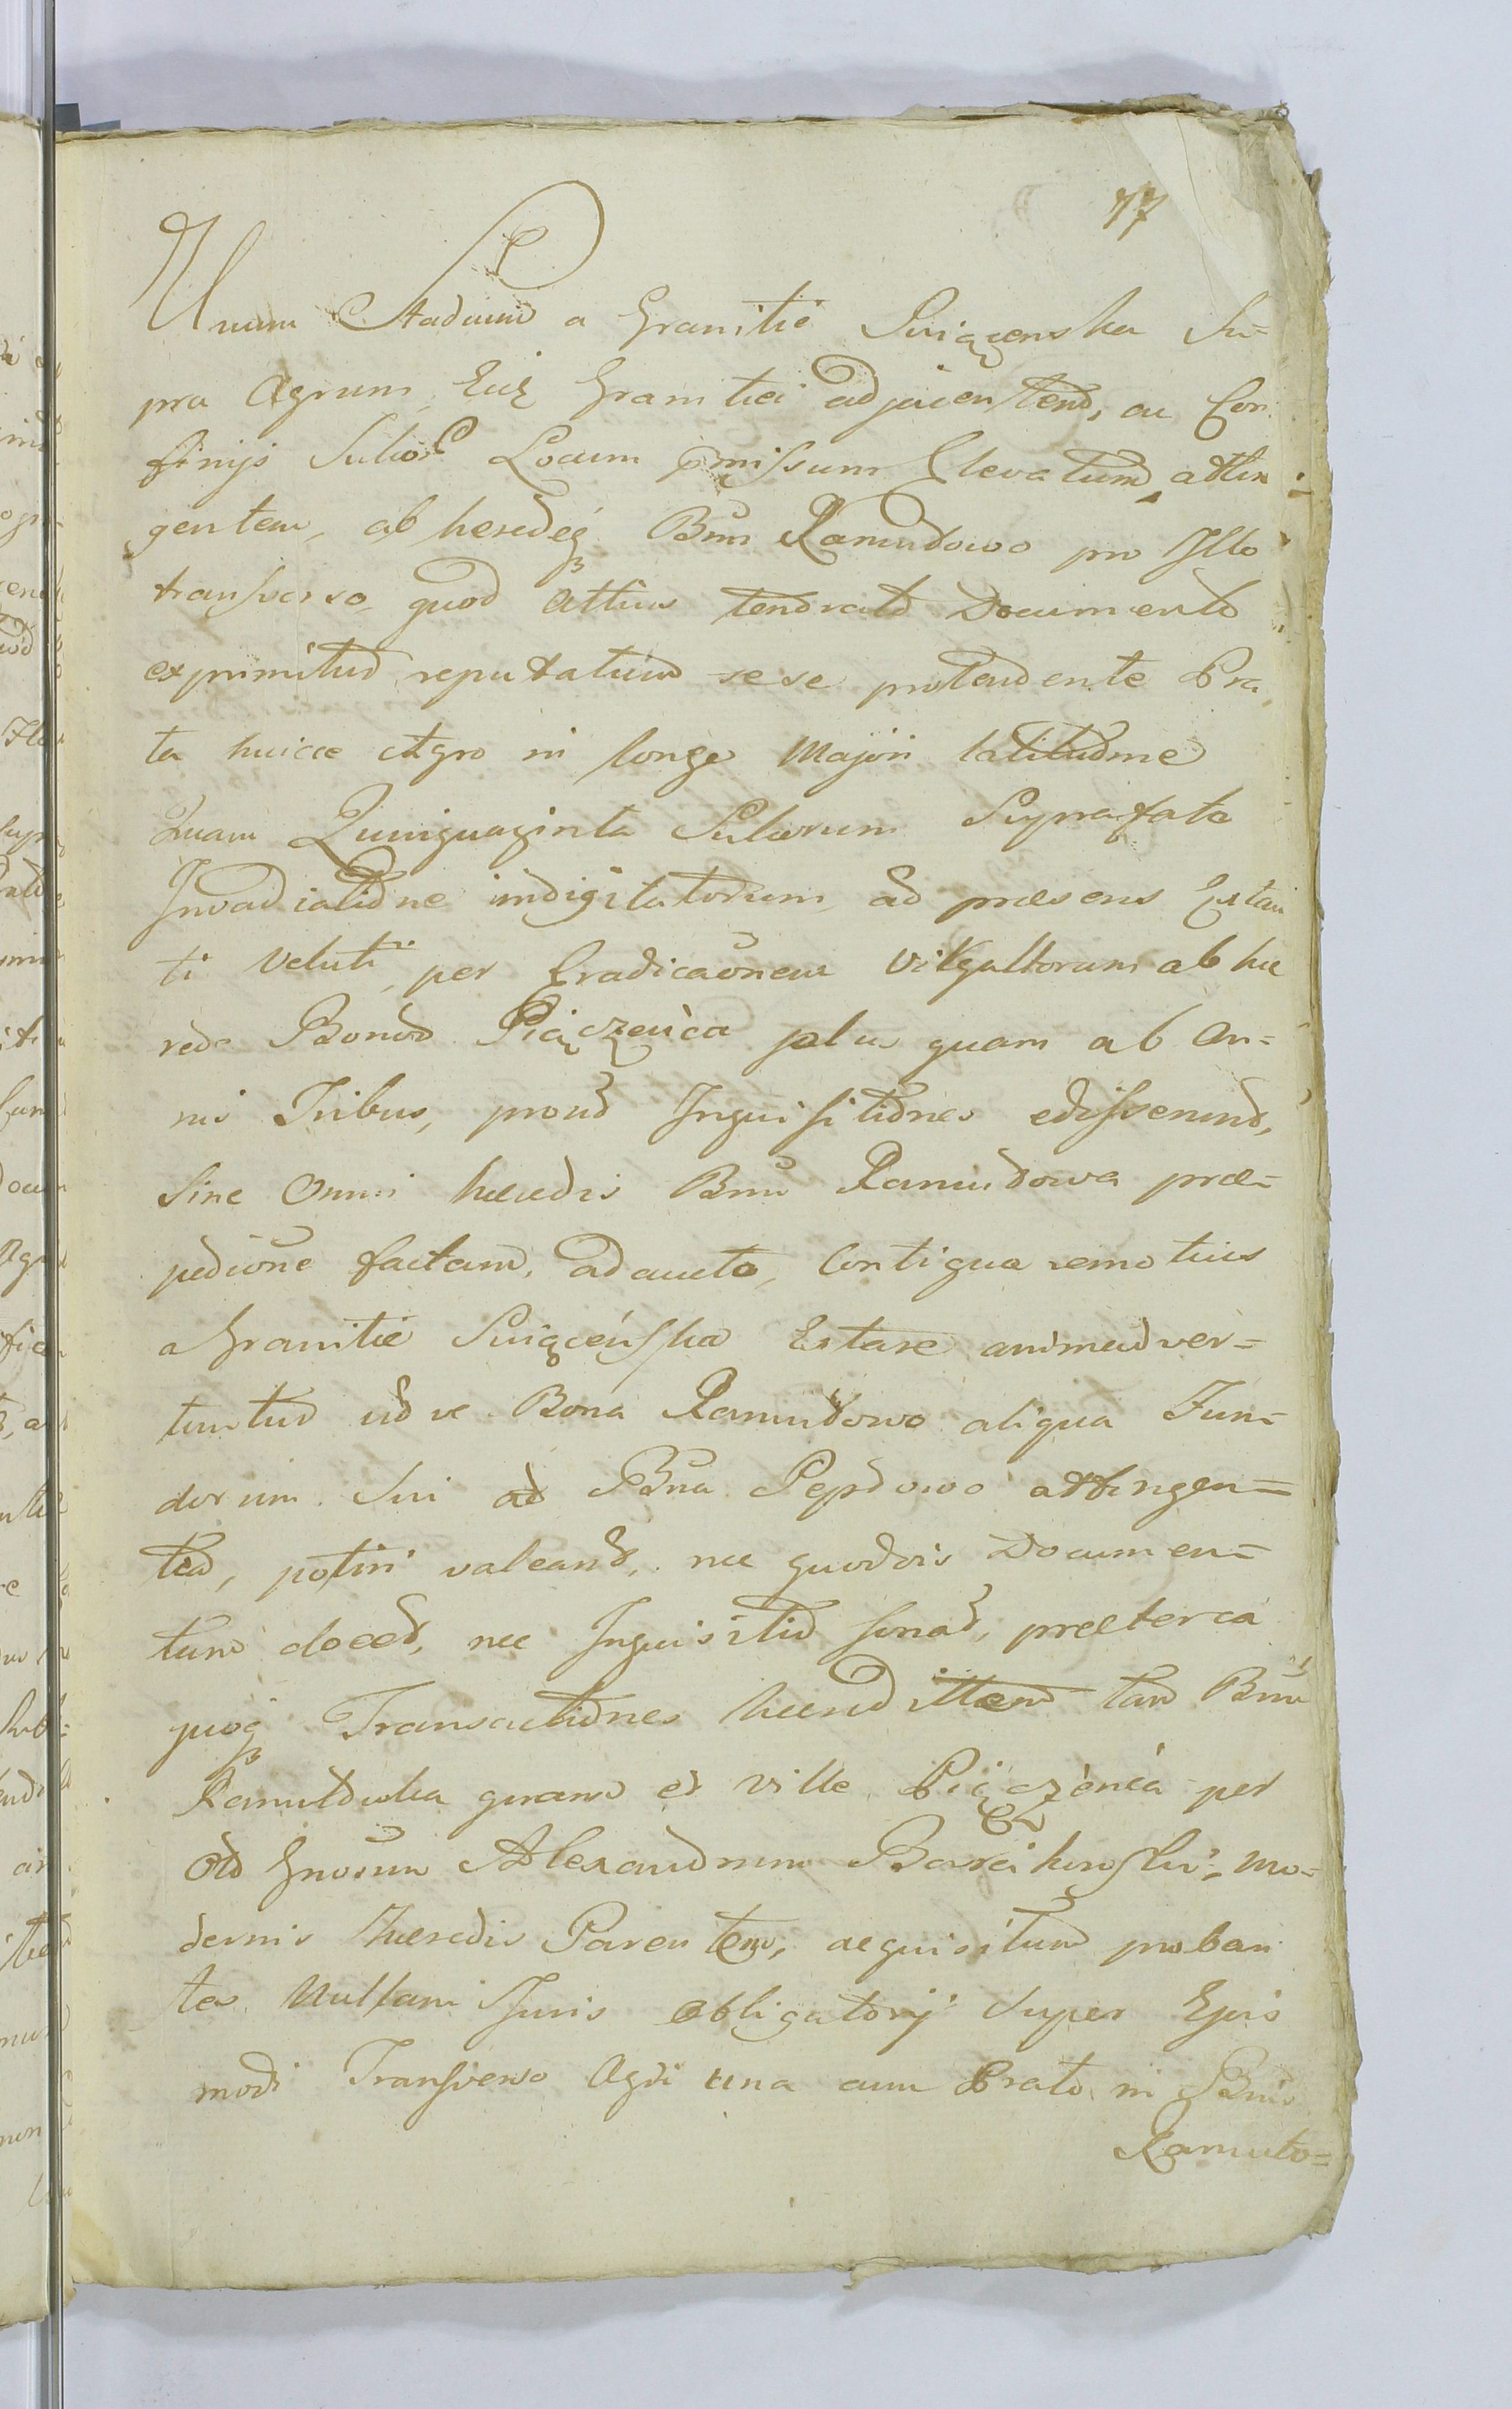 77
Unum Stadium a Granitie Piiączenska Su-
pra Agrum, Eidę Granitiei adjacentem, ac Con
finijs Sulcor Locum omissum Elevatum attin-
gentem, ab herede Bnm Ramutowo pro Illo
transverso, quod Actus tendrald Documento
exprimitur reputatum sese protendente Pra
ta huicce Agro in longe Majori latitudine
Quam Quinquaginta Sulcorum Suprafata
Invadiatione indigitatorum, ad praesens Extan
ti veluti, per Eradicaonem Virgultorum ab hae
rede Bonor Piączenica plus quam ab An-
nis Tribus, prout Inquisitiones edisserunt,
Sine Omni haeredis Bnm Ramutowa prae-
pedione factam, adaucto, Contigua remotius
a Granitie Piiącenska Extare animadver-
tuntur ut ve Bona Ramutowo aliqua Fun-
dorum Sui ad Bna Pepowo attingen-
tia, potiri valeant, nec quodvis Documen-
tum docet, nec Inquisitio sonat, praeterea
quoq Transactiones haereditatem tam Bnm
Ramutowka quam et ville Piączenica per
Old Gnosum Alexandrum Barcikowski, mo-
dernis Haeredis Parentem, acquisitum proban
tes Nullam Juris obligatorij Super Ejus
modi Transverso Agri una cum Prato in Bnis
Ramuto-